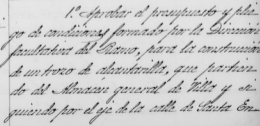 1.º Aprobar el presupuesto y plie-
go de condiciones formado por la Dirección
facultativa del Ramo, para la construcción
de un trozo de alcantarilla, que partien-
do del Almacen general de Villa y si-
guiendo por el eje de la calle de Santa En-